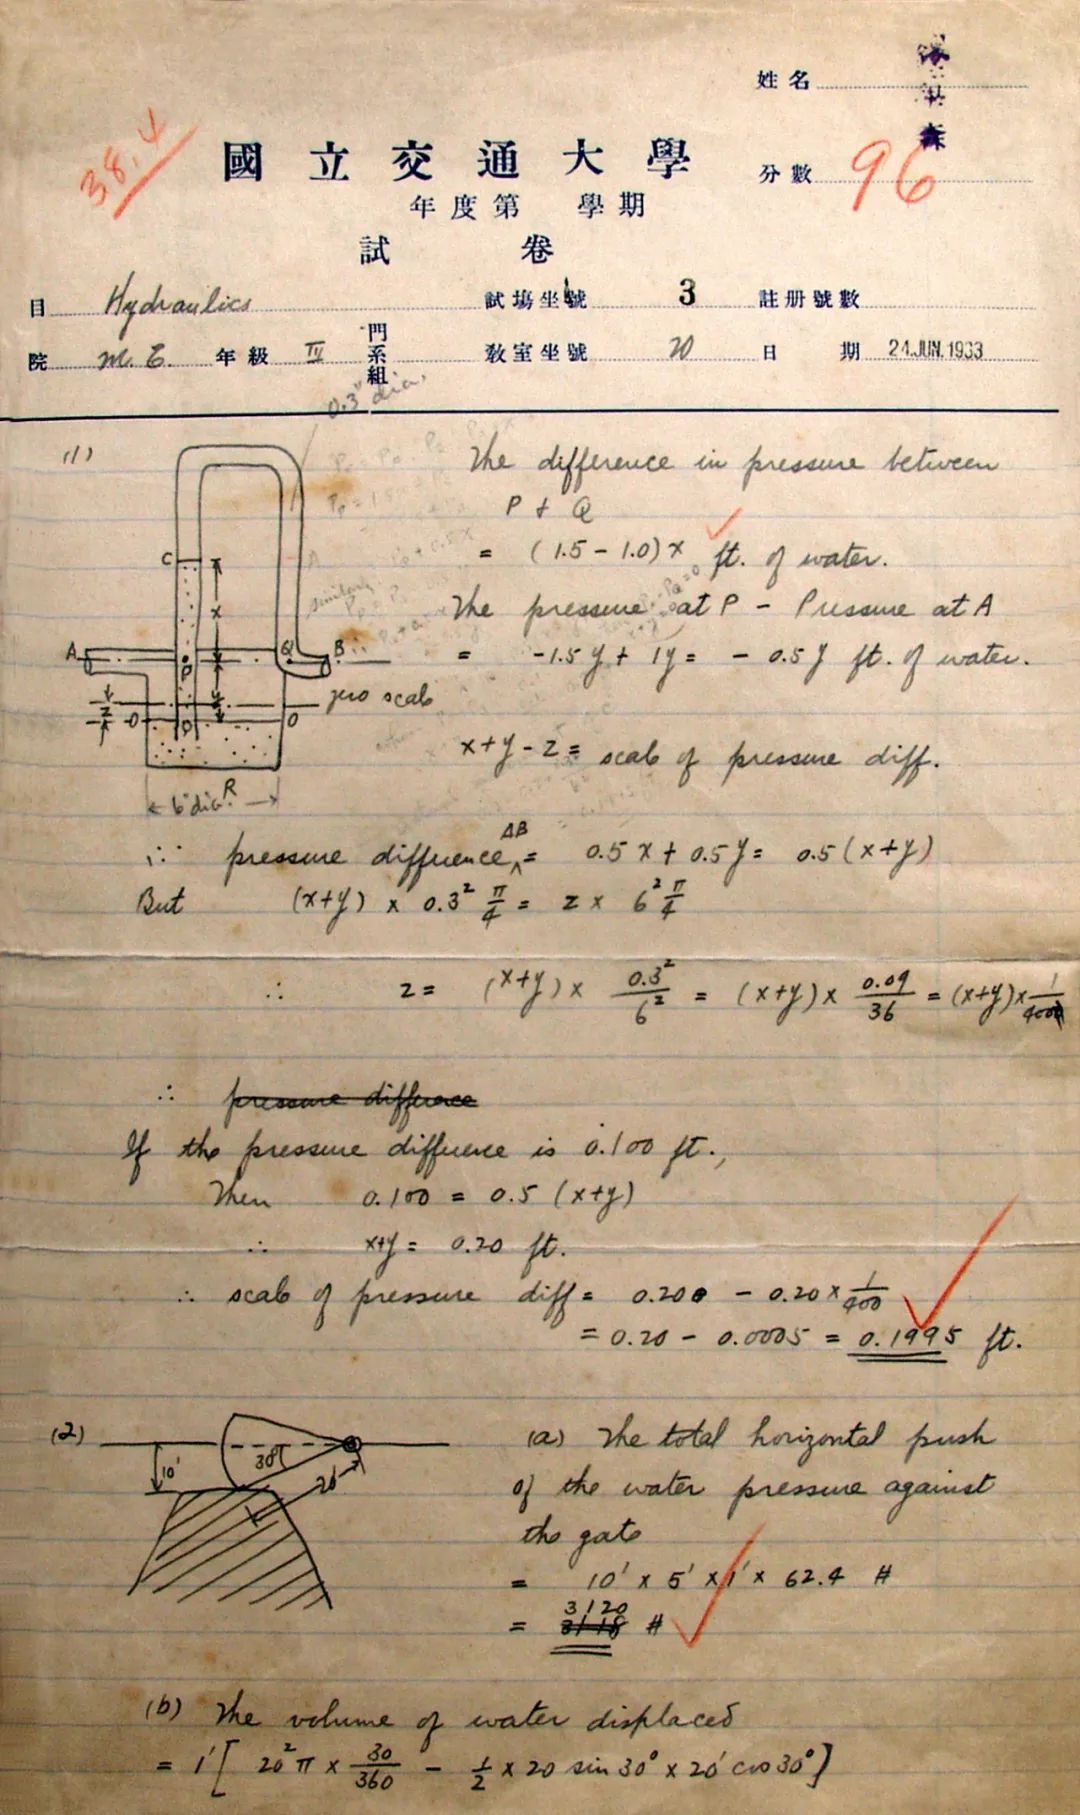 姓名
38.4
國立交通大學
分數 96
年度第 學期
試卷
目 Hydraulics 試場坐號 3 註册號數
院 M. E. 年級 IV 門系組 教室坐號 20 日期 24.JUN.1933
0.3" dia.
(1)
The difference in pressure between
P + Q
= (1.5 - 1.0) x ft. of water.
The pressure at P - Pressure at A
= -1.5 y + 1y = - 0.5 y ft. of water.
C
x
A P Q B
zero scale
z y
O D O
R
6" dia.
x+y-z = scale of pressure diff.
∴ pressure difference AB = 0.5 x + 0.5 y = 0.5 (x+y)
But (x+y) x 0.3² π/4 = z x 6² π/4
∴ z = (x+y) x 0.3²/6² = (x+y) x 0.09/36 = (x+y) x 1/400
∴ pressure difference
If the pressure difference is 0.100 ft.,
Then 0.100 = 0.5 (x+y)
∴ x+y = 0.20 ft.
∴ scale of pressure diff = 0.200 - 0.20 x 1/400
= 0.20 - 0.0005 = 0.1995 ft.
(2)
10' 30° 20'
(a) The total horizontal push
of the water pressure against
the gate
= 10' x 5' x 1' x 62.4 #
= 3118 3120 #
(b) The volume of water displaced
= 1' [ 20² π x 30/360 - 1/2 x 20 sin 30° x 20' cos 30° ]